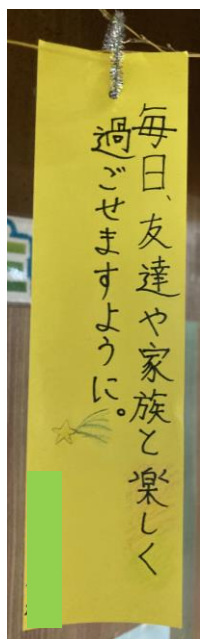 毎日、友達や家族と楽しく
過ごせますように。